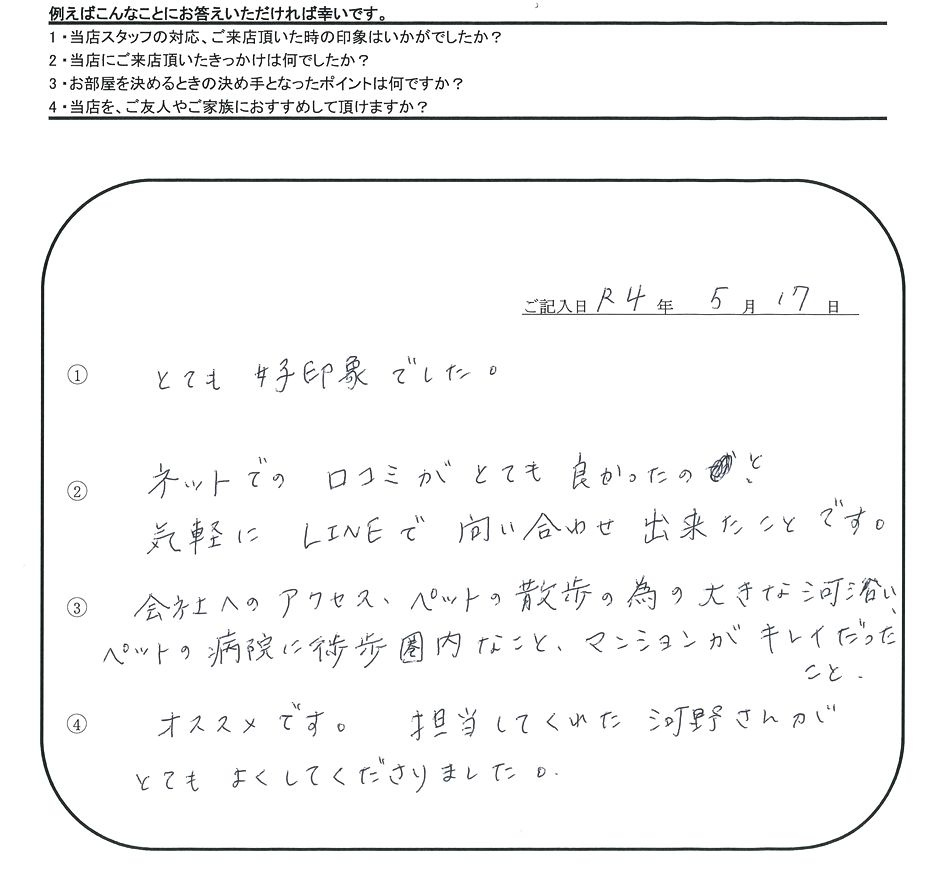 例えばこんなことにお答えいただければ幸いです。
1・当店スタッフの対応、ご来店頂いた時の印象はいかがでしたか?
2・当店にご来店頂いたきっかけは何でしたか?
3・お部屋を決めるときの決め手となったポイントは何ですか?
4・当店を、ご友人やご家族におすすめして頂けますか?
ご記入日 R4 年 5 月 17 日
① とても 好印象でした。
② ネットでの 口コミが とても 良かったのと、
気軽に LINEで 問い合わせ 出来たことです。
③ 会社へのアクセス、ペットの散歩の為の大きな河沿い、
ペットの病院に徒歩圏内なこと、マンションがキレイだった
こと.
④ オススメです。 担当してくれた 河野さんが
とても よくしてくださりました。